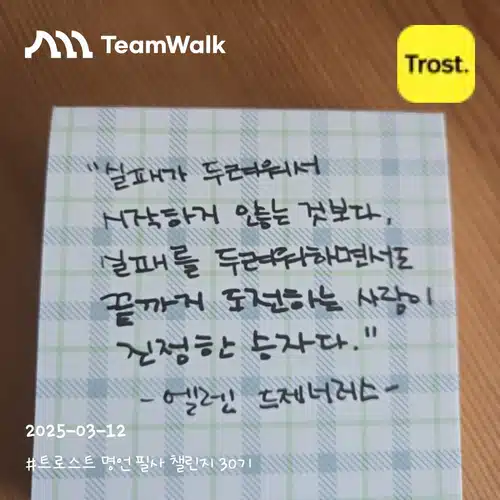 TeamWalk
Trost.
"실패가 두려워서
시작하지 않는 것보다,
실패를 두려워하면서도
끝까지 도전하는 사람이
진정한 승자다."
- 엘렌 드제너러스 -
2025-03-12
#트로스트 명언 필사 챌린지 30기